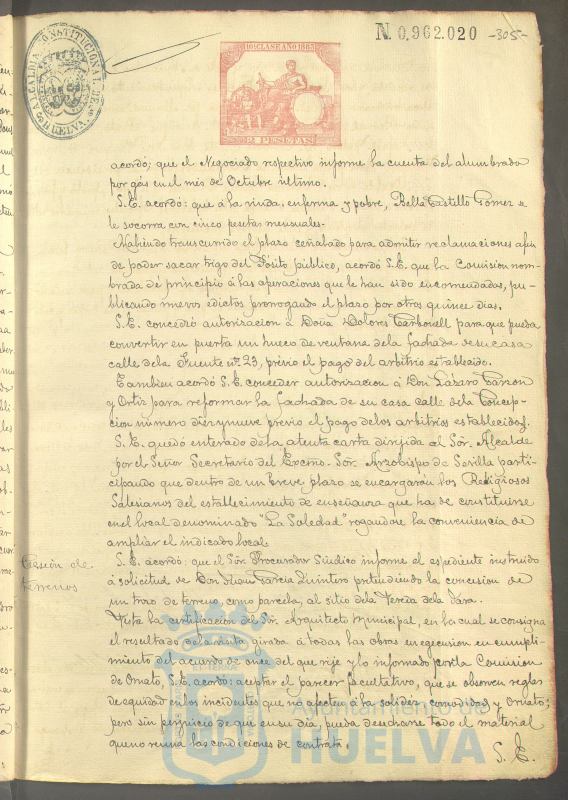 N. 0,962,020 -305-
10ª CLASE AÑO 1883
2 PESETAS
ALCALDIA CONSTITUCIONAL DE HUELVA
acordó; que el Negociado respectivo informe la cuenta del alumbrado
por gas en el mes de Octubre último.
S.E. acordó: que á la viuda, enferma y pobre, Bella Castillo Gomez se
le socorra con cinco pesetas mensuales.
Habiendo transcurrido el plazo señalado para admitir reclamaciones afin
de poder sacar trigo del Pósito público, acordó S.E. que la Comision nom-
brada dé principio á las operaciones que le han sido encomendadas, pu-
blicando nuevos edictos prorrogando el plazo por otros quince dias.
S.E. concedió autorizacion á Doña Dolores Carbonell para que pueda
convertir en puerta un hueco de ventana de la fachada de su casa
calle de la Fuente nº 23, prévio el pago del arbitrio establecido.
Tambien acordó S.E. conceder autorizacion á Don Lázaro Garzon
y Ortiz para reformar la fachada de su casa calle de la Concep-
cion número diez y nueve prévio el pago de los arbitrios establecidos.
S.E. quedó enterado de la atenta carta dirijida al Sór. Alcalde
por el Señor Secretario del Excmo. Sór. Arzobispo de Sevilla parti-
cipando que dentro de un breve plazo se encargarán los Religiosos
Salesianos del establecimiento de enseñanza que ha de constituirse
en el local denominado "La Soledad" rogandose la conveniencia de
ampliar el indicado local.
Cesión de
terrenos
S.E. acordó: que el Sór. Procurador Síndico informe el espediente instruido
á solicitud de Don Juan Garcia Quintero pretendiendo la concesion de
un trozo de terreno, como parcela, al sitio de la Vereda de la Vára.
Vista la certificacion del Sór. Arquitecto Municipal, en la cual se consigna
el resultado de la visita girada á todas las obras en ejecucion en cumpli-
miento del acuerdo de once del que rije y lo informado por la Comision
de Ornato, S.E. acordó: aceptar el parecer facultativo, que se observen reglas
de equidad en los incidentes que no afecten á la solidez, comodidad y ornato;
pero sin perjuicio de que en su dia, pueda desecharse todo el material
que no reuna las condiciones de contrata.
S.E.
Ayuntamiento de
HUELVA